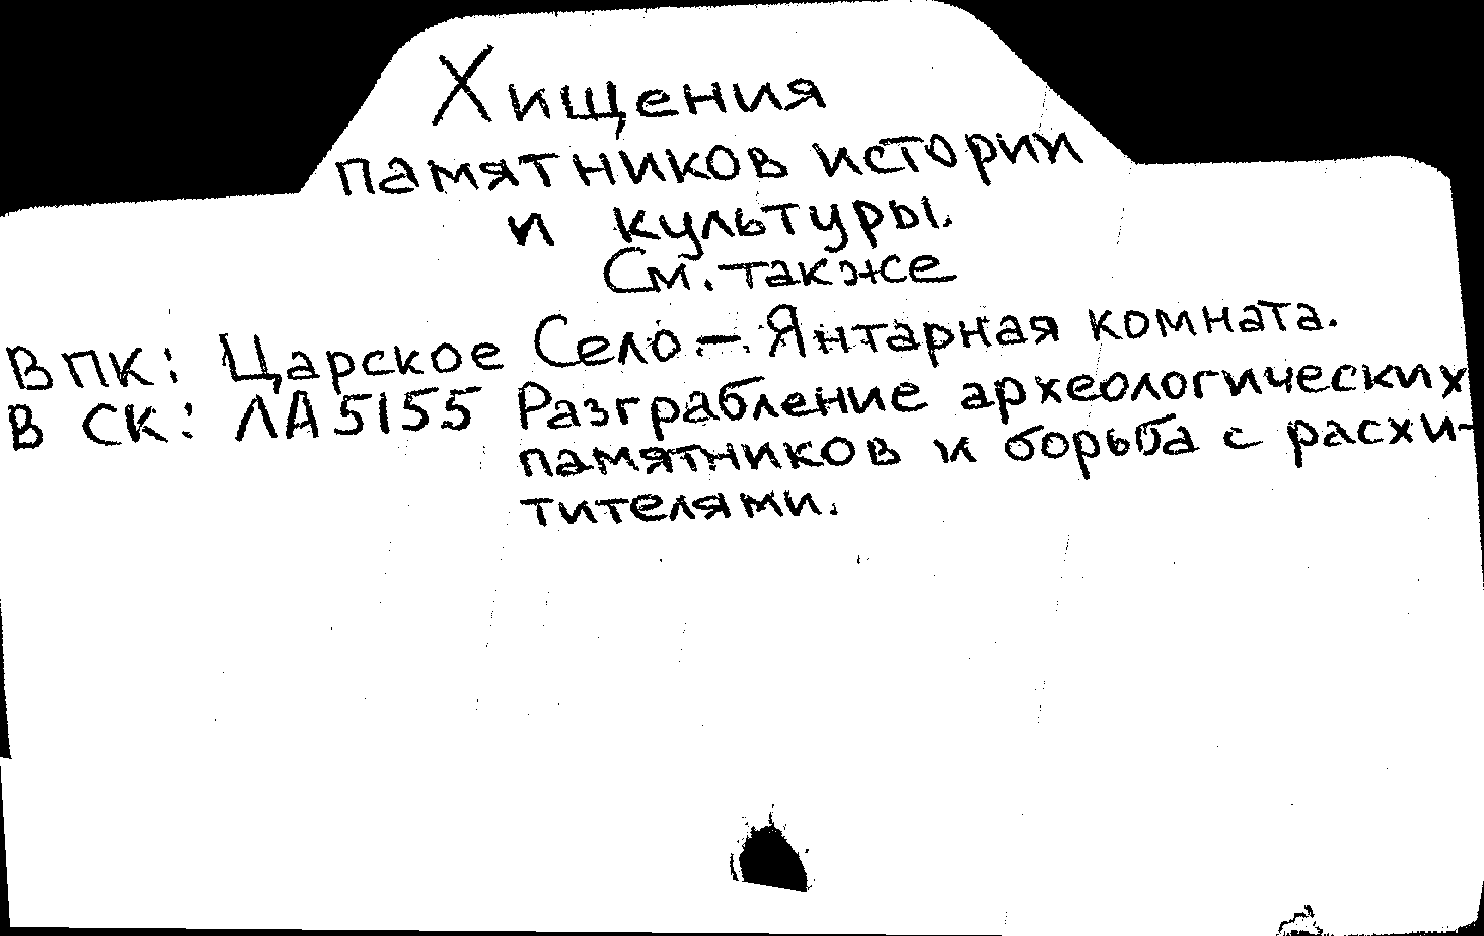 Хищения
памятников истории
и культуры.
См. также
В ПК: Царское Село – Янтарная комната.
В СК: ЛА5155 Разграбление археологических
памятников и борьба с расхи-
тителями.